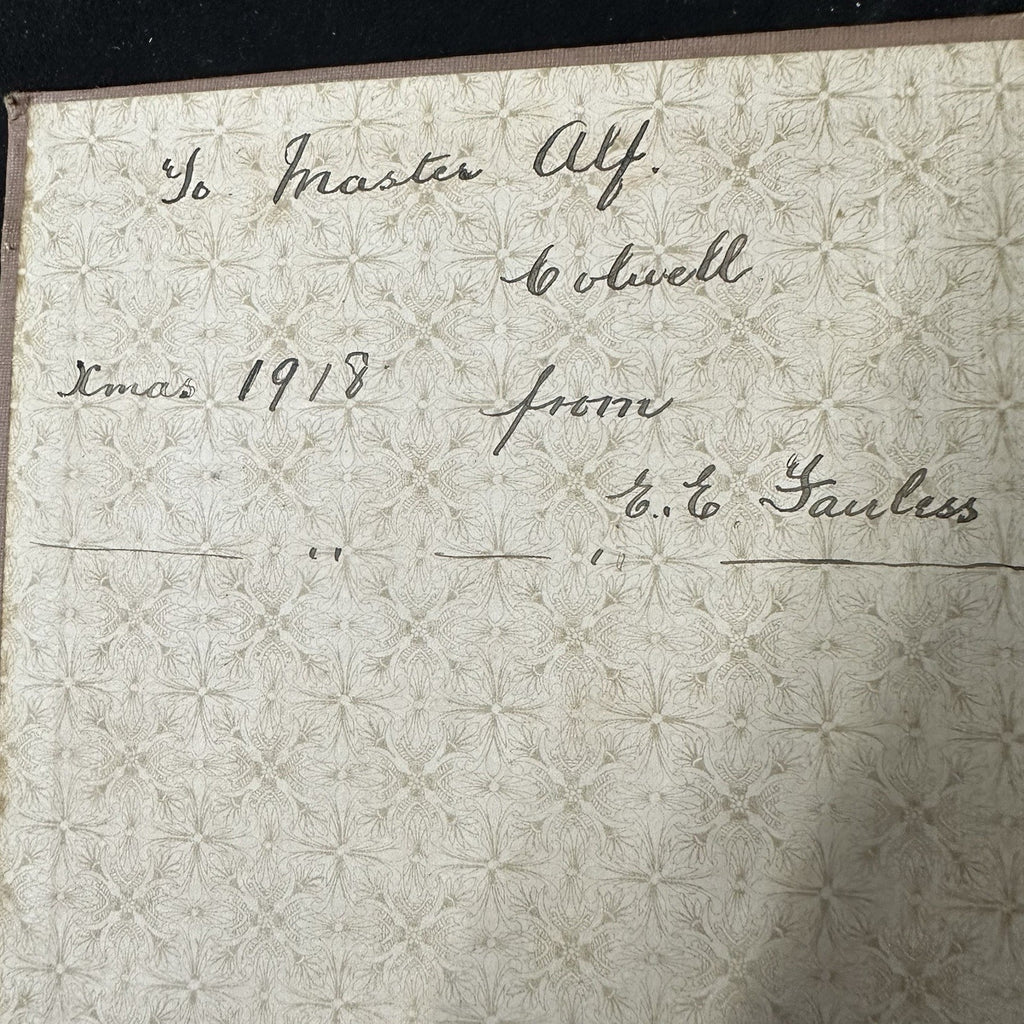 To Master Alf.
Colwell
Xmas 1918 from
E. E. Fauless